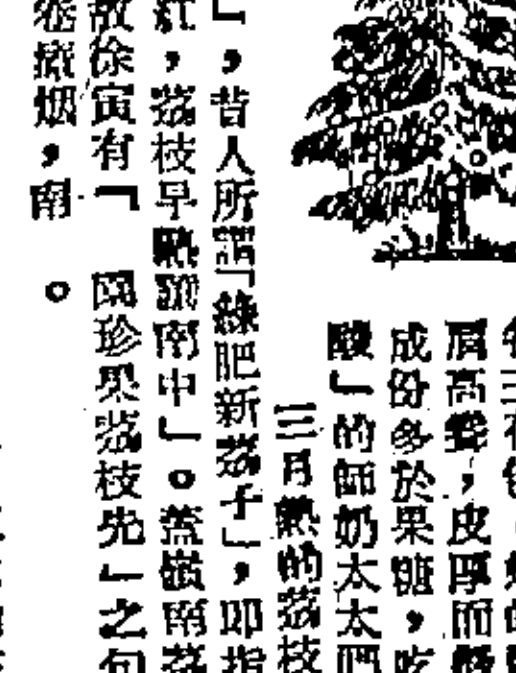 肩高聳，皮厚而
成份多於果糖，吃
酸」的師奶太太們
三月熟的荔枝
」，昔人所謂「綠肥新荔子」，即指
紅，荔枝早熟嶺南中」。蓋嶺南荔
故徐寅有「珍果荔枝先」之句
烟，南。